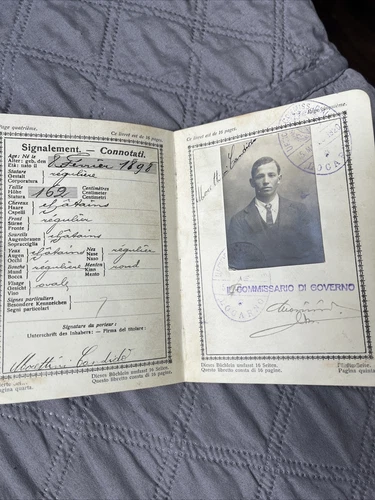 Page quatrième.
Ce livret est de 16 pages.
Signalement. — Connotati.
Age: Né le
Alter: geb. den
Età: nato il
8 Février 1898
Stature
Gestalt
Corporatura
régulière
Taille
Höhe
Statura
169
Centimètres
Centimeter
Centimetri
Cheveux
Haare
Capelli
châtains
Front
Stirne
Fronte
régulier
Sourcils
Augenbrauen
Sopracciglia
châtains
Yeux
Augen
Occhi
châtains
Nez
Nase
Naso
régulier
Bouche
Mund
Bocca
régulière
Menton
Kinn
Mento
rond
Visage
Gesicht
Viso
ovale
Signes particuliers
Besondere Kennzeichen
Segni particolari
/
Signature du porteur:
Unterschrift des Inhabers: — Firma del titolare:
Dieses Büchlein umfasst 16 Seiten.
Questo libretto consta di 16 pagine.
Pagina quarta.
Page cinquième.
Ce livret est de 16 pages.
IL COMMISSARIO DI GOVERNO
LOCARNO
Dieses Büchlein umfasst 16 Seiten.
Questo libretto consta di 16 pagine.
Pagina quinta